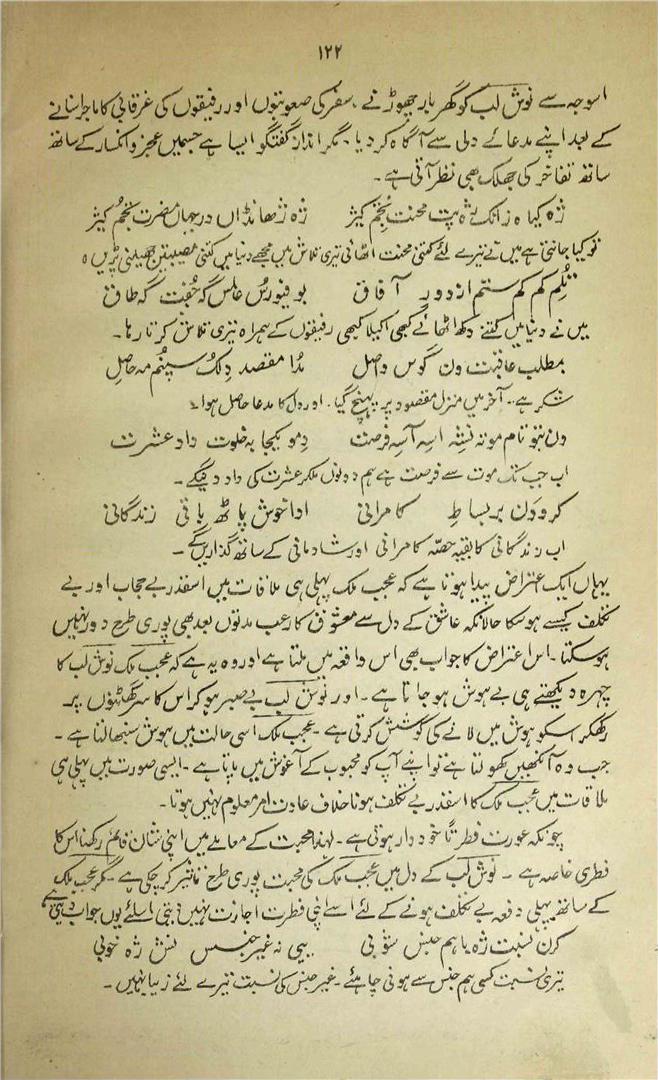 ۱۲۲
اسوجہ سے نوش لب کو گھر بار چھوڑنے، سفر کی صعوبتوں اور رفیقوں کی غرقابی کا ماجرا سنانے
کے بعد اپنے مدعائے دلی سے آگاہ کر دیا۔ مگر انداز گفتگو ایسا ہے جسمیں عجز و انکسار کے ساتھ
ساتھ تفاخر کی جھلک بھی نظر آتی ہے۔
ژہ کیاہ زانک ژہ پت محنت نچم کیژ ژہ ژھانڈاں در جہاں مضرت نچم کیژ
تو کیا جانتی ہے میں نے تیرے لئے کتنی محنت اٹھائی تیری تلاش میں مجھے دنیا میں کتنی مصیبتیں جھیلنی پڑیں ہ
تلم کم کم ستم از دور آفاق بو فیورس عالس گہ جفت گہ طاق
میں نے دنیا میں کتنے دکھ اٹھائے کبھی اکیلا کبھی رفیقوں کے ہمراہ تیری تلاش کرتا رہا۔
مطلب عاقبت ون گوس واصل مدا مقصد دلک سپنم مہ حاصل
شکر ہے۔ آخر میں منزل مقصود پر پہنچ گیا۔ اور دل کا مدعا حاصل ہوا۔
ون نتو تام موتہ نشہ اسہ آسہ فرصت دمو یکجا بہ خلوت داد عشرت
اب جب تک موت سے فرصت ہے ہم دونوں ملکر عشرت کی داد دینگے۔
کرو ون بر بساطِ کامرانی ادا خوش پاٹھ باقی زندگانی
اب زندگانی کا بقیہ حصّہ کامرانی اور شادمانی کے ساتھ گذاریں گے۔
یہاں ایک اعتراض پیدا ہوتا ہے کہ عجب ملک پہلی ہی ملاقات میں اسقدر بے حجاب اور بے
تکلف کیسے ہوسکا حالانکہ عاشق کے دل سے معشوق کا رعب مدتوں بعد بھی پوری طرح دور نہیں
ہوسکتا۔ اس اعتراض کا جواب بھی اس واقعہ میں ملتا ہے اور وہ یہ ہے کہ عجب ملک نوش لب کا
چہرہ دیکھتے ہی بے ہوش ہو جاتا ہے۔ اور نوش لب بے صبر ہو کر اس کا سر گھٹنوں پر۔
رکھکر اسکو ہوش میں لانے کی کوشش کرتی ہے۔ عجب ملک اسی حالت میں ہوش سنبھالتا ہے۔
جب وہ آنکھیں کھولتا ہے تو اپنے آپ کو محبوب کے آغوش میں پاتا ہے۔ ایسی صورت میں پہلی ہی
ملاقات میں عجب ملک کا اسقدر بے تکلف ہونا خلاف عادت امر معلوم نہیں ہوتا۔
چونکہ عورت فطرتاً خود دار ہوتی ہے۔ لہذا محبت کے معاملے میں اپنی شان قائم رکھنا اس کا
فطری خاصہ ہے۔ نوش لب کے دل میں عجب ملک کی محبت پوری طرح تاثیر کر چکی ہے۔ مگر عجب ملک
کے ساتھ پہلی دفعہ بے تکلف ہونے کے لئے اسے اپنی فطرت اجازت نہیں دیتی اسلئے یوں جواب دیتی ہے
کرن نسبت ژہ با ہم جنس شوبی یپی نہ غیر جنس نش ژہ خوبی
تیری نسبت کسی ہم جنس سے ہونی چاہئے۔ غیر جنس کی نسبت تیرے لئے زیبا نہیں۔